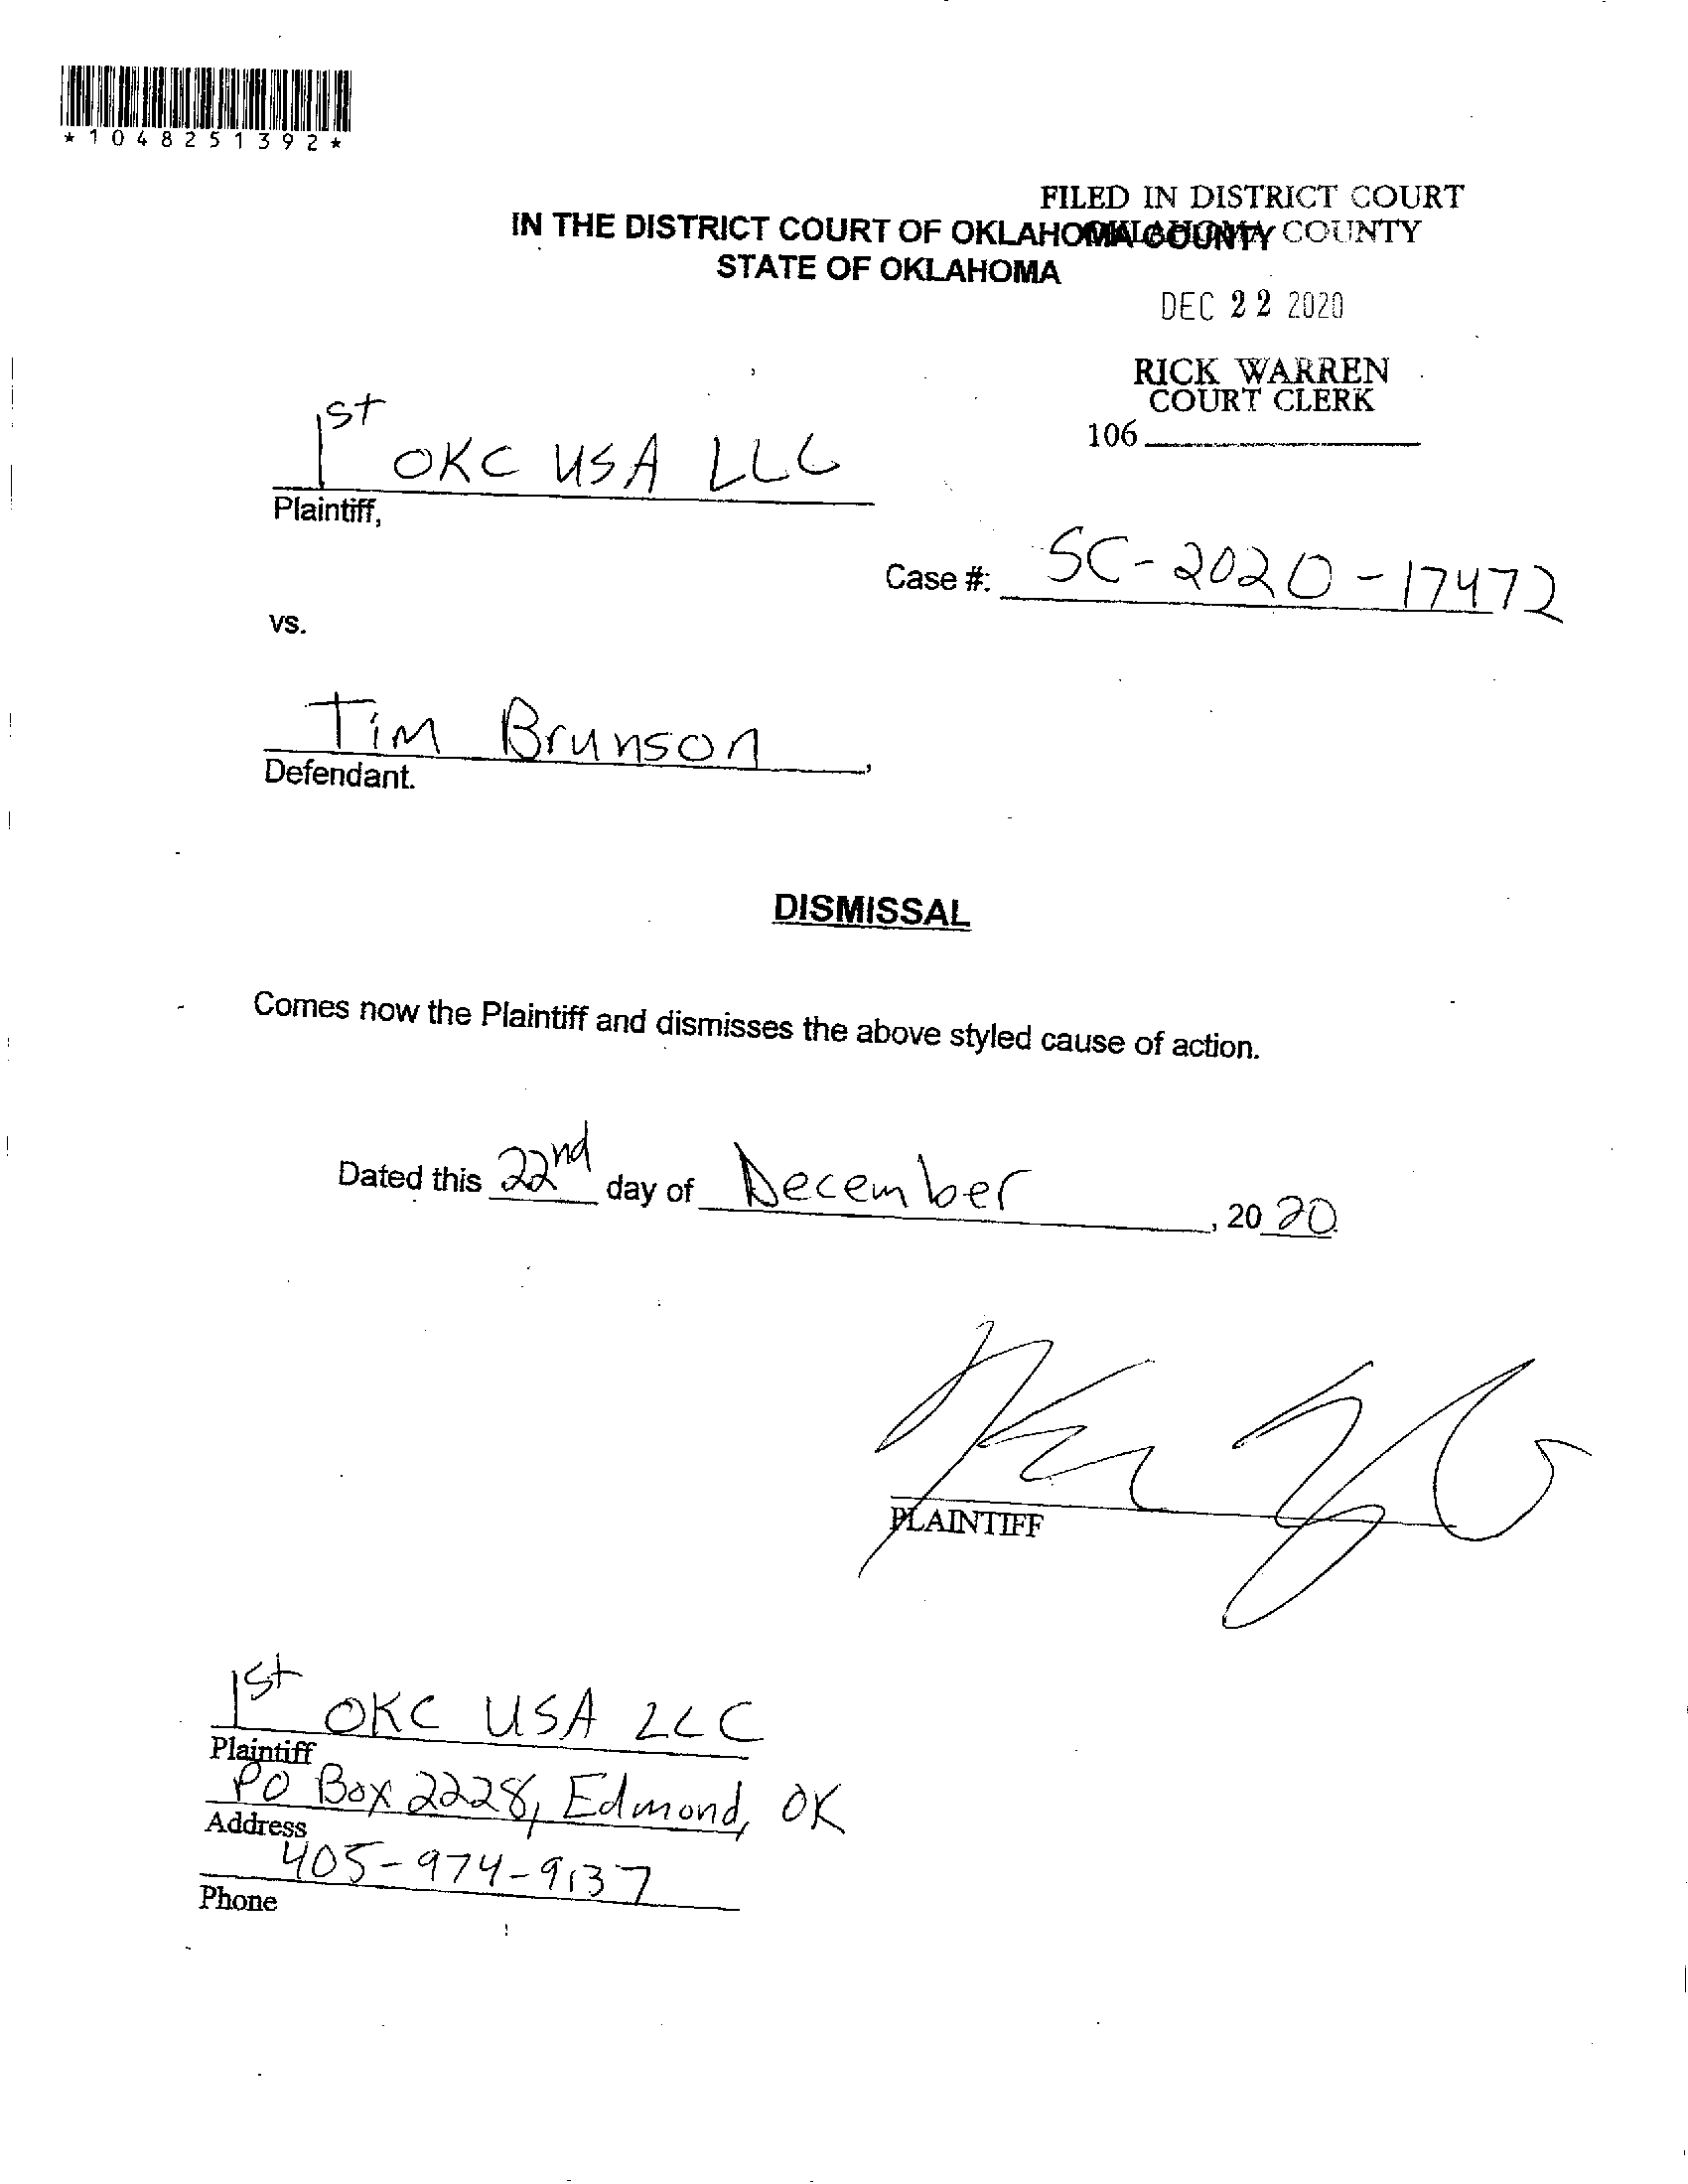 *1048251392*
FILED IN DISTRICT COURT
OKLAHOMA COUNTY
IN THE DISTRICT COURT OF OKLAHOMA COUNTY
STATE OF OKLAHOMA
DEC 22 2020
RICK WARREN
COURT CLERK
106
1st OKC USA LLC
Plaintiff,
Case #: SC-2020-17472
vs.
Tim Brunson,
Defendant.
DISMISSAL
Comes now the Plaintiff and dismisses the above styled cause of action.
Dated this 22nd day of December, 2020.
PLAINTIFF
1st OKC USA LLC
Plaintiff
PO Box 2228, Edmond, OK
Address
405-974-9137
Phone